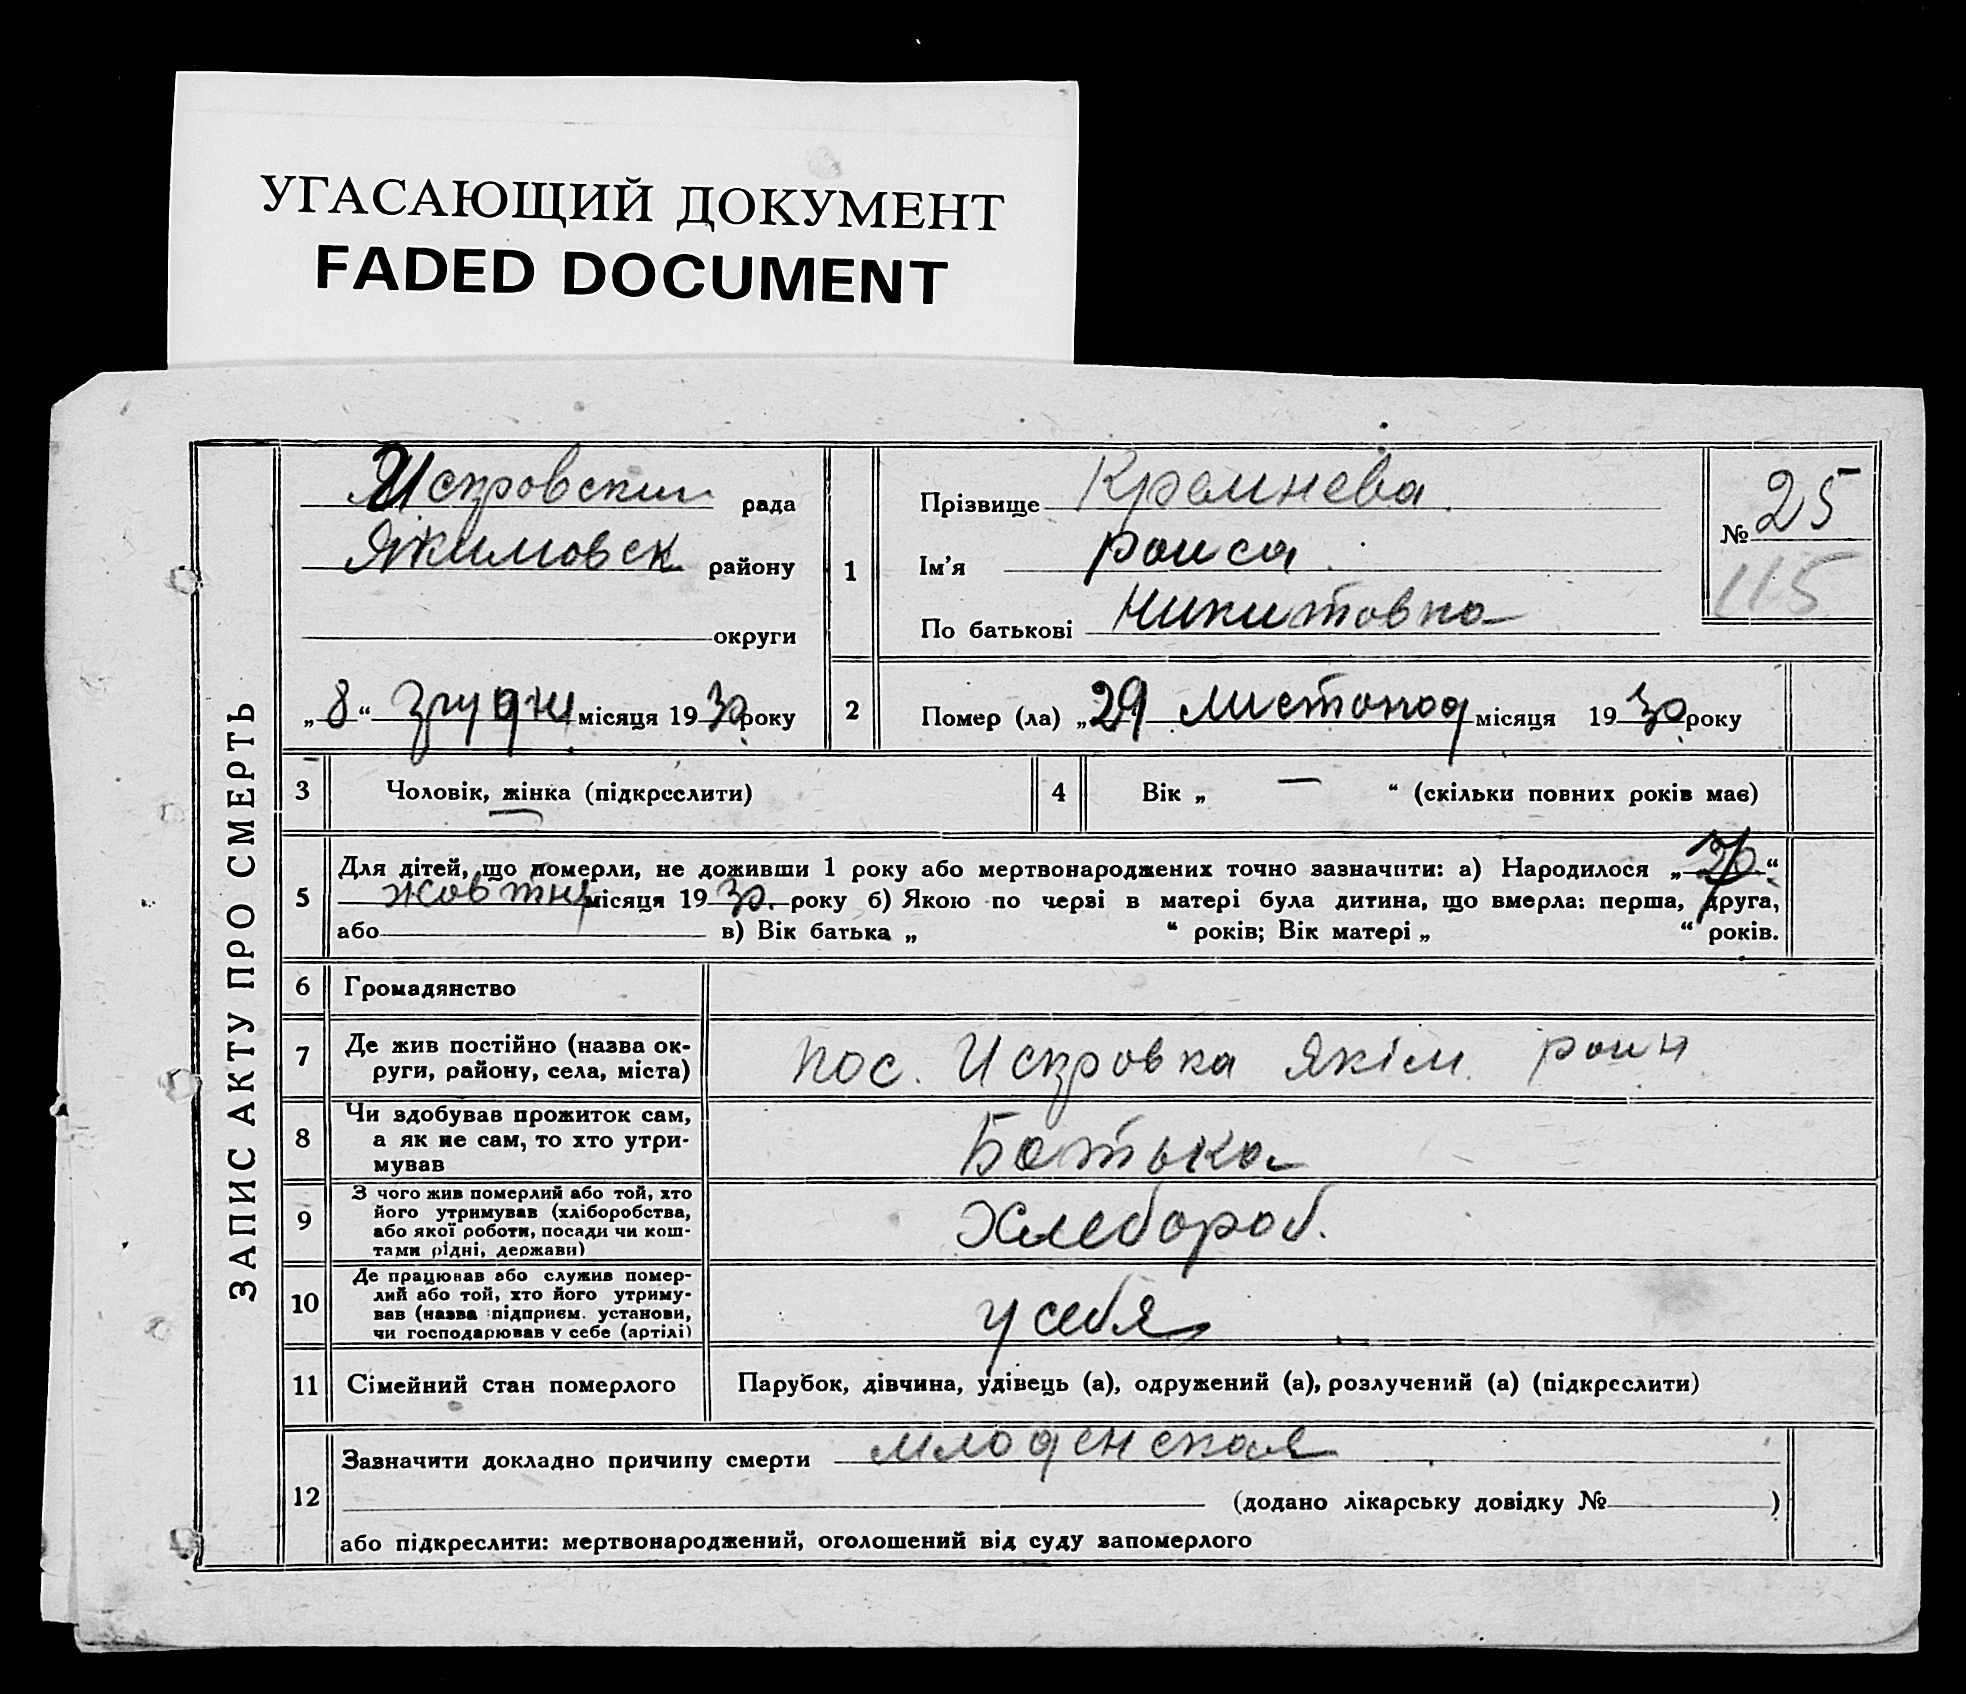 УГАСАЮЩИЙ ДОКУМЕНТ
FADED DOCUMENT
ЗАПИС АКТУ ПРО СМЕРТЬ
Искровский рада
Якимовск району
округи
„8“ Згрудни місяця 1930 року
1
Прізвище Кремнева
Ім’я раиса
По батькові Никитовна
№ 25
115
2
Помер (ла) „29 листопад місяця 1930 року
3
Чоловік, жінка (підкреслити)
4
Вік „ — “ (скільки повних років має)
5
Для дітей, що померли, не доживши 1 року або мертвонароджених точно зазначити: а) Народилося „ “
жовтня місяця 1930. року б) Якою по черзі в матері була дитина, що вмерла: перша, друга,
або в) Вік батька „ “ років; Вік матері „ “ років.
6
Громадянство
7
Де жив постійно (назва ок-
руги, району, села, міста)
пос. Искровка Якім. роин
8
Чи здобував прожиток сам,
а як не сам, то хто утри-
мував
Батька
9
З чого жив померлий або той, хто
його утримував (хліборобства,
або якої роботи, посади чи кош-
тами рідні, держави)
Хлебороб.
10
Де працював або служив помер-
лий або той, хто його утриму-
вав (назва підприєм. установи,
чи господарював у себе (артілі)
у себя
11
Сімейний стан померлого
Парубок, дівчина, удівець (а), одружений (а), розлучений (а) (підкреслити)
12
Зазначити докладно причину смерти младенская
(додано лікарську довідку № )
або підкреслити: мертвонароджений, оголошений від суду запомерлого